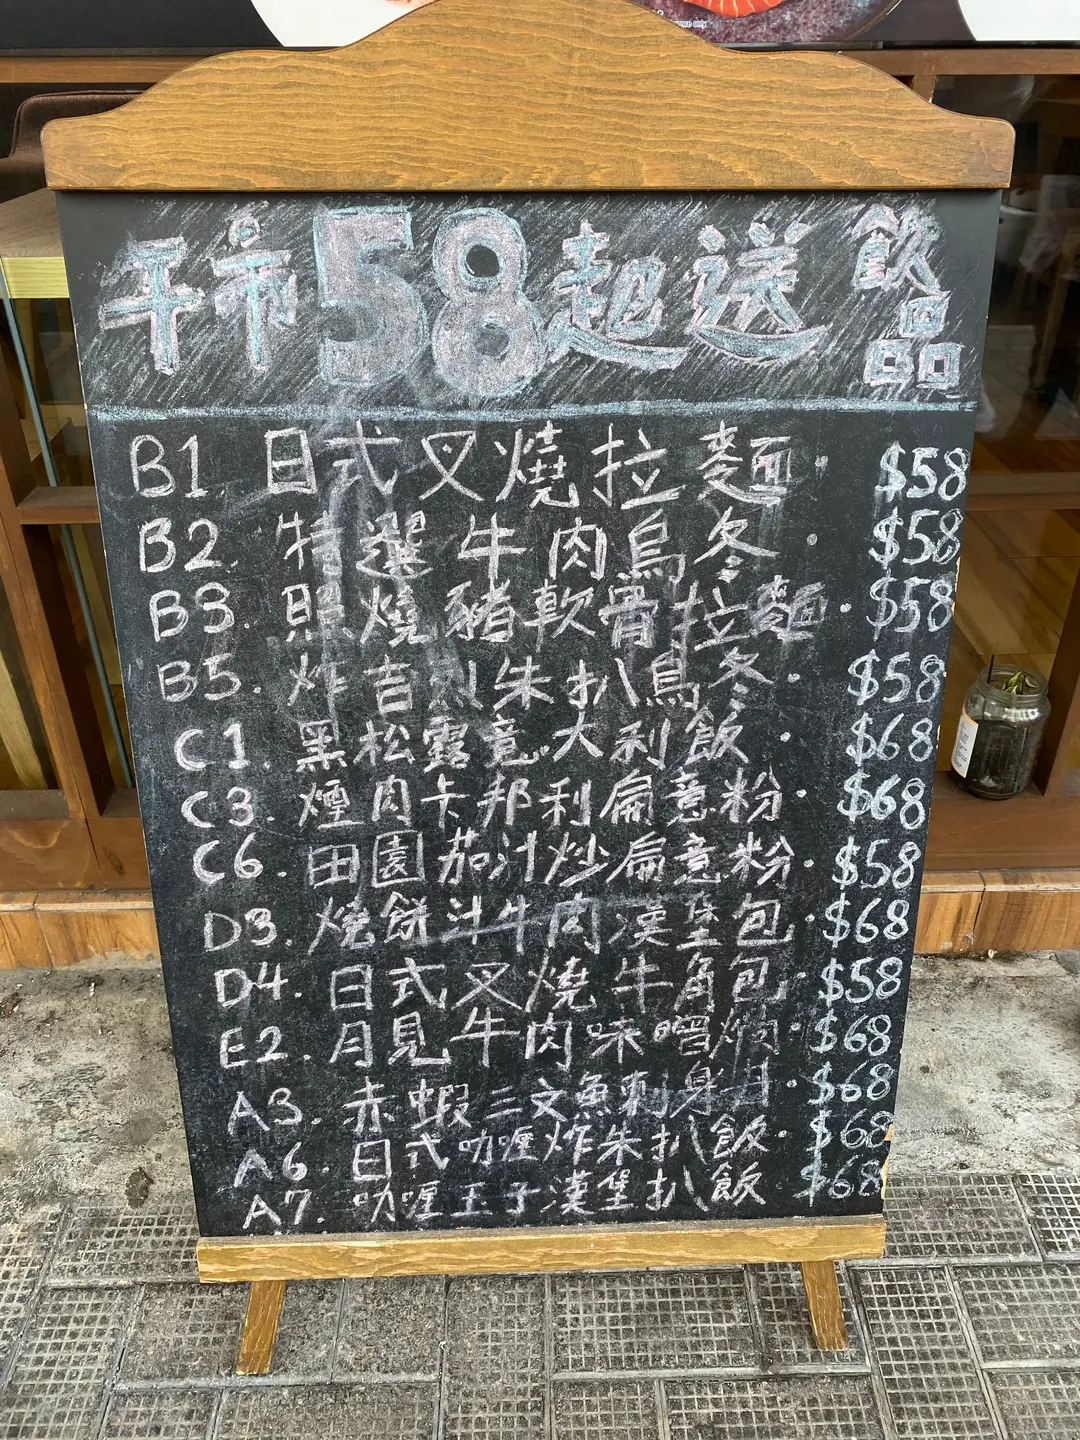 午市58起送飲品
B1 日式叉燒拉麵. $58
B2. 特選牛肉烏冬. $58
B3. 照燒豬軟骨拉麵. $58
B5. 炸吉烈朱扒烏冬. $58
C1. 黑松露意大利飯. $68
C3. 煙肉卡邦利扁意粉. $68
C6. 田園茄汁炒扁意粉. $58
D3. 燒餅汁牛肉漢堡包 $68
D4. 日式叉燒牛角包. $58
E2. 月見牛肉味噌焗. $68
A3. 赤蝦三文魚刺身丼. $68
A6. 日式咖喱炸朱扒飯. $68
A7. 咖喱玉子漢堡扒飯 $68